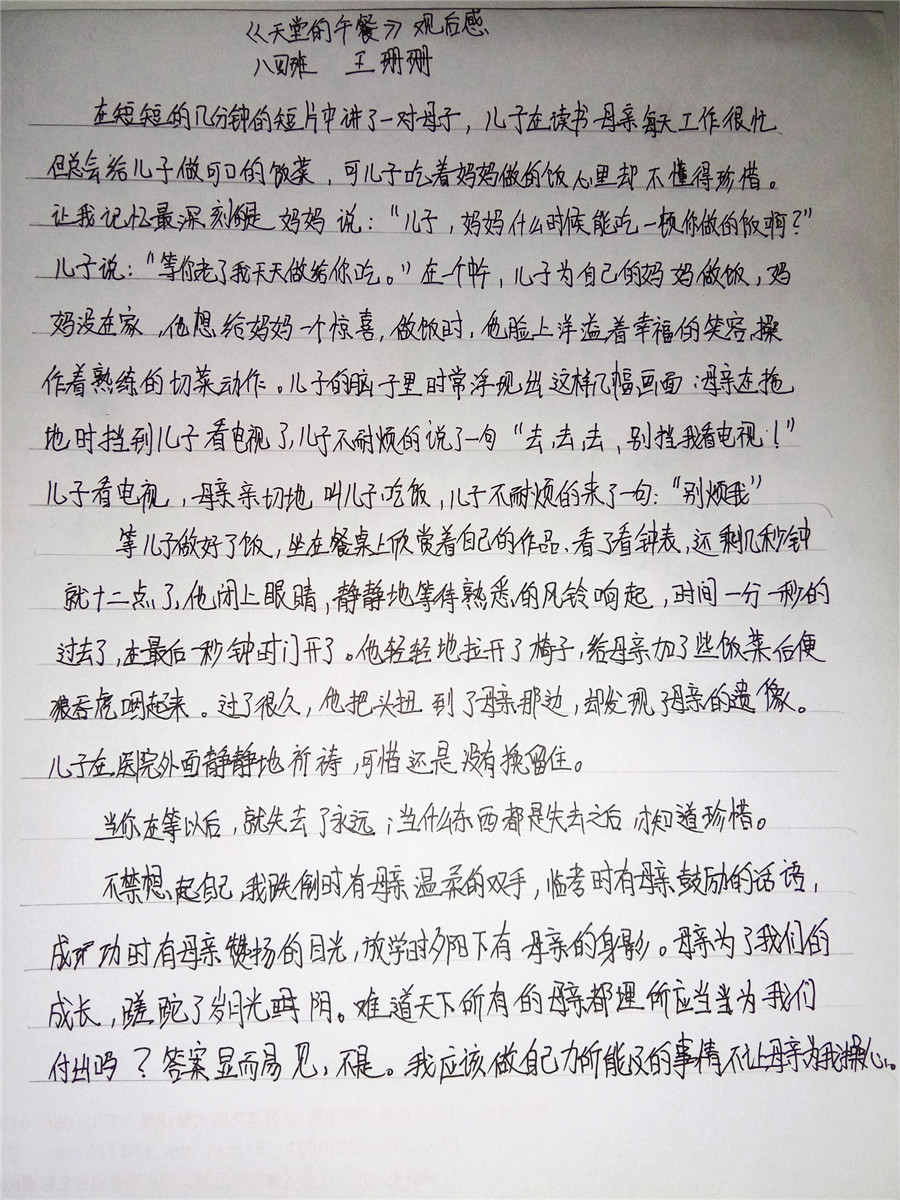 《天堂的午餐》观后感
八四班 王珊珊
在短短的几分钟的短片中讲了一对母子，儿子在读书母亲每天工作很忙
但总会给儿子做可口的饭菜，可儿子吃着妈妈做的饭心里却不懂得珍惜。
让我记忆最深刻的是妈妈说：“儿子，妈妈什么时候能吃一顿你做的饭啊？”
儿子说：“等你老了我天天做给你吃。”在一个中午，儿子为自己的妈妈做饭，妈
妈没在家，他想给妈妈一个惊喜，做饭时，他脸上洋溢着幸福的笑容，操
作着熟练的切菜动作。儿子的脑子里时常浮现出这样几幅画面：母亲在拖
地时挡到儿子看电视了，儿子不耐烦的说了一句“去，去，去，别挡我看电视！”
儿子看电视，母亲亲切地叫儿子吃饭，儿子不耐烦的来了一句：“别烦我”
等儿子做好了饭，坐在餐桌上欣赏着自己的作品、看了看钟表，还剩几秒钟
就十二点了，他闭上眼睛，静静地等待熟悉的风铃响起，时间一分一秒的
过去了，在最后一秒钟时门开了。他轻轻地拉开了椅子，给母亲加了些饭菜后便
狼吞虎咽起来。过了很久，他把头扭到了母亲那边，却发现了母亲的遗像。
儿子在医院外面静静地祈祷，可惜还是没有挽留住。
当你在等以后，就失去了永远；当什么东西都是失去之后才知道珍惜。
不禁想起自己，我跌倒时有母亲温柔的双手，临考时有母亲鼓励的话语，
成功时有母亲赞扬的目光，放学时夕阳下有母亲的身影。母亲为了我们的
成长，蹉跎了岁月光阴。难道天下所有的母亲都理所应当当为我们
付出吗？答案显而易见，不是。我应该做自己力所能及的事情不让母亲为我操心。